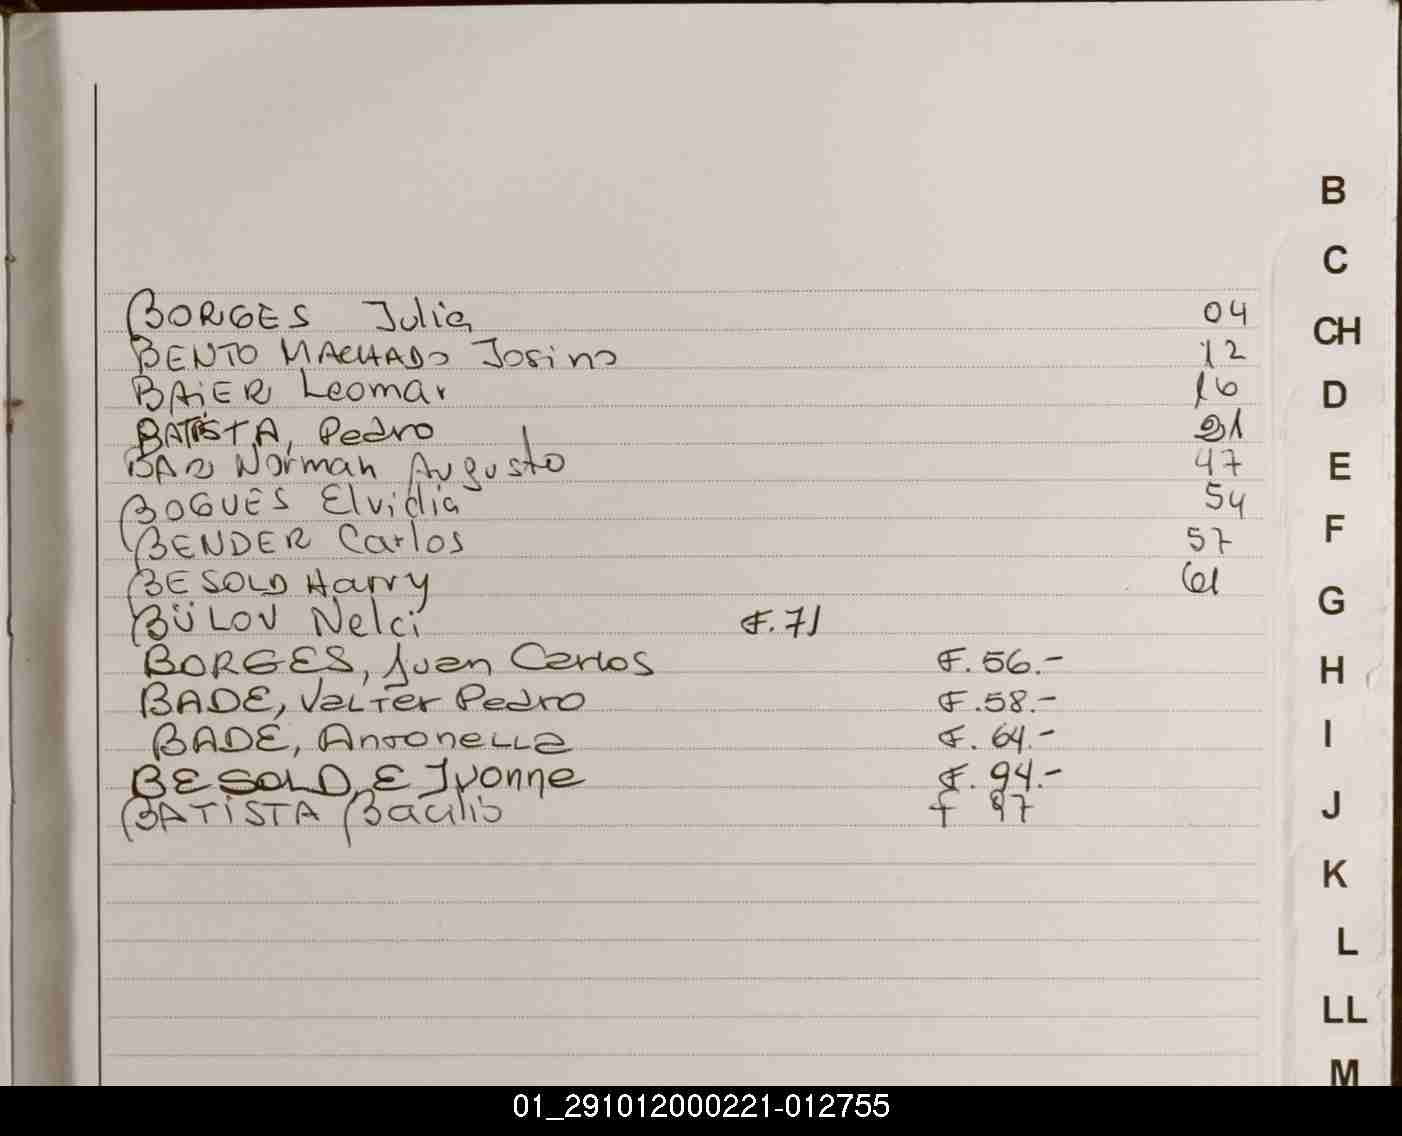 BORGES Julia 04
BENTO MACHADO Josino 12
BAiER Leomar 16
BATISTA, Pedro 21
BAR Norman Augusto 47
BOGUES Elvidia 54
BENDER Carlos 57
BESOLD Harry 61
BÜLOV Nelci F.71
BORGES, Juan Carlos F. 56.-
BADE, Valter Pedro F. 58.-
BADE, Antonella F. 64.-
BESOLD, E Ivonne F. 94.-
BATISTA Bacilio f 97
B
C
CH
D
E
F
G
H
I
J
K
L
LL
M
01_291012000221-012755